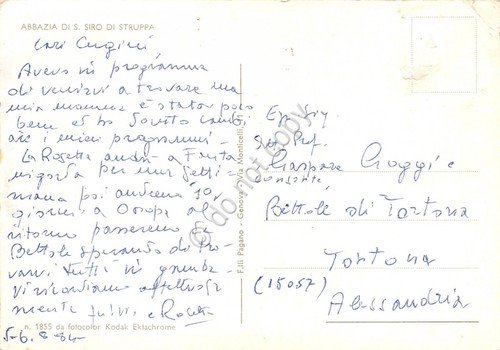 ABBAZIA DI S. SIRO DI STRUPPA
Cari Cugini
Avevo in programma
di venirvi a trovare ma
mia mamma è stata poco
bene ed ho dovuto cambi
are i miei programmi -
La Rosetta andrà a
per una setti
mana poi andremo 10
giorni a Oropa al
ritorno passeremo da
Bettole sperando di tro
varvi tutti in gamba -
Vi ricordiamo affettuosa
mente e Rosetta
5-6.8.84
n. 1855 da fotocolor Kodak Ektachrome
F.lli Pagano - Genova - Via Monticelli
© do not copy
Gaspare Groggi e
consorte
Bettole di Tortona
Tortona
(15057)
Alessandria